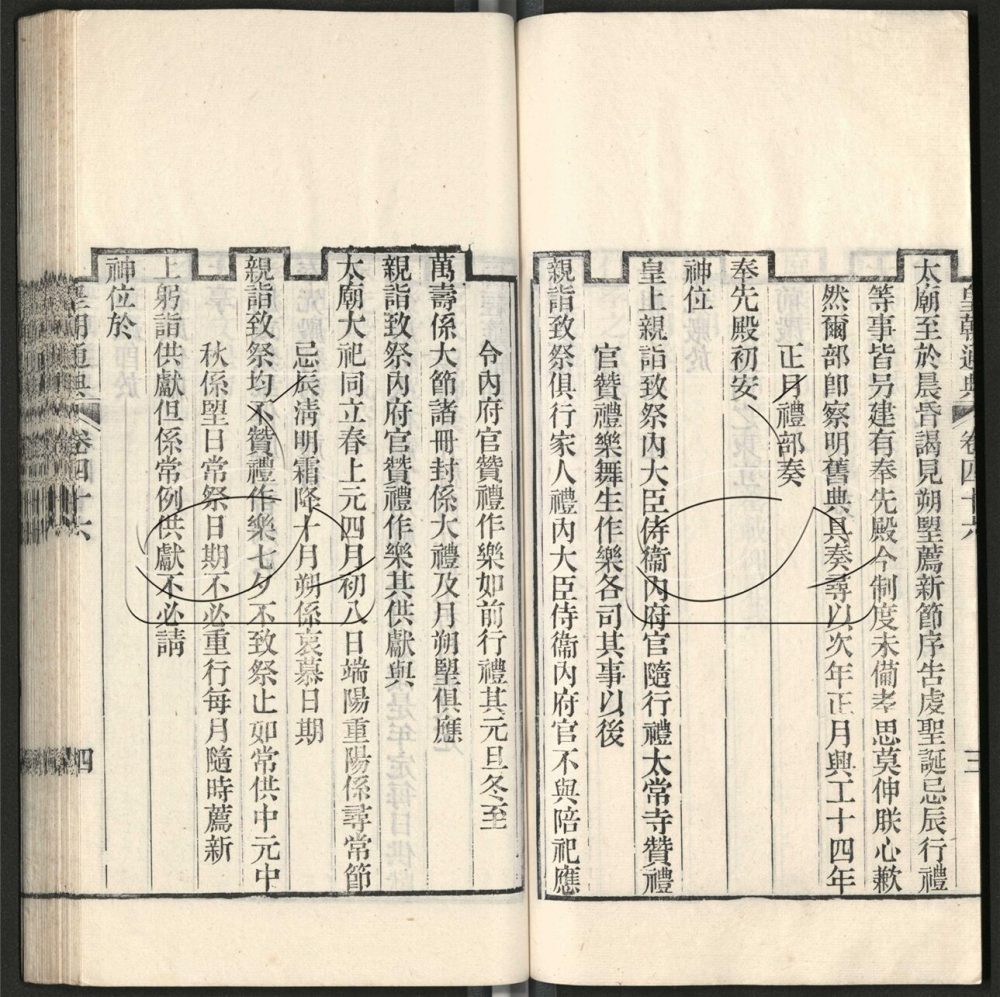 皇朝通典 卷四十六 三
太廟至於晨昏謁見朔朢薦新節序告虔聖誕忌辰行禮
等事皆另建有奉先殿今制度未備孝思莫伸朕心歉
然爾部卽察明舊典具奏尋以次年正月興工十四年
正月禮部奏
奉先殿初安
神位
皇上親詣致祭內大臣侍衞內府官隨行禮太常寺贊禮
官贊禮樂舞生作樂各司其事以後
親詣致祭俱行家人禮內大臣侍衞內府官不與陪祀應
令內府官贊禮作樂如前行禮其元旦冬至
萬壽係大節諸冊封係大禮及月朔朢俱應
親詣致祭內府官贊禮作樂其供獻與
太廟大祀同立春上元四月初八日端陽重陽係尋常節
忌辰淸明霜降十月朔係哀慕日期
親詣致祭均不贊禮作樂七夕不致祭止如常供中元中
秋係朢日常祭日期不必重行每月隨時薦新
上躬詣供獻但係常例供獻不必請
神位於
皇朝通典 卷四十六 四